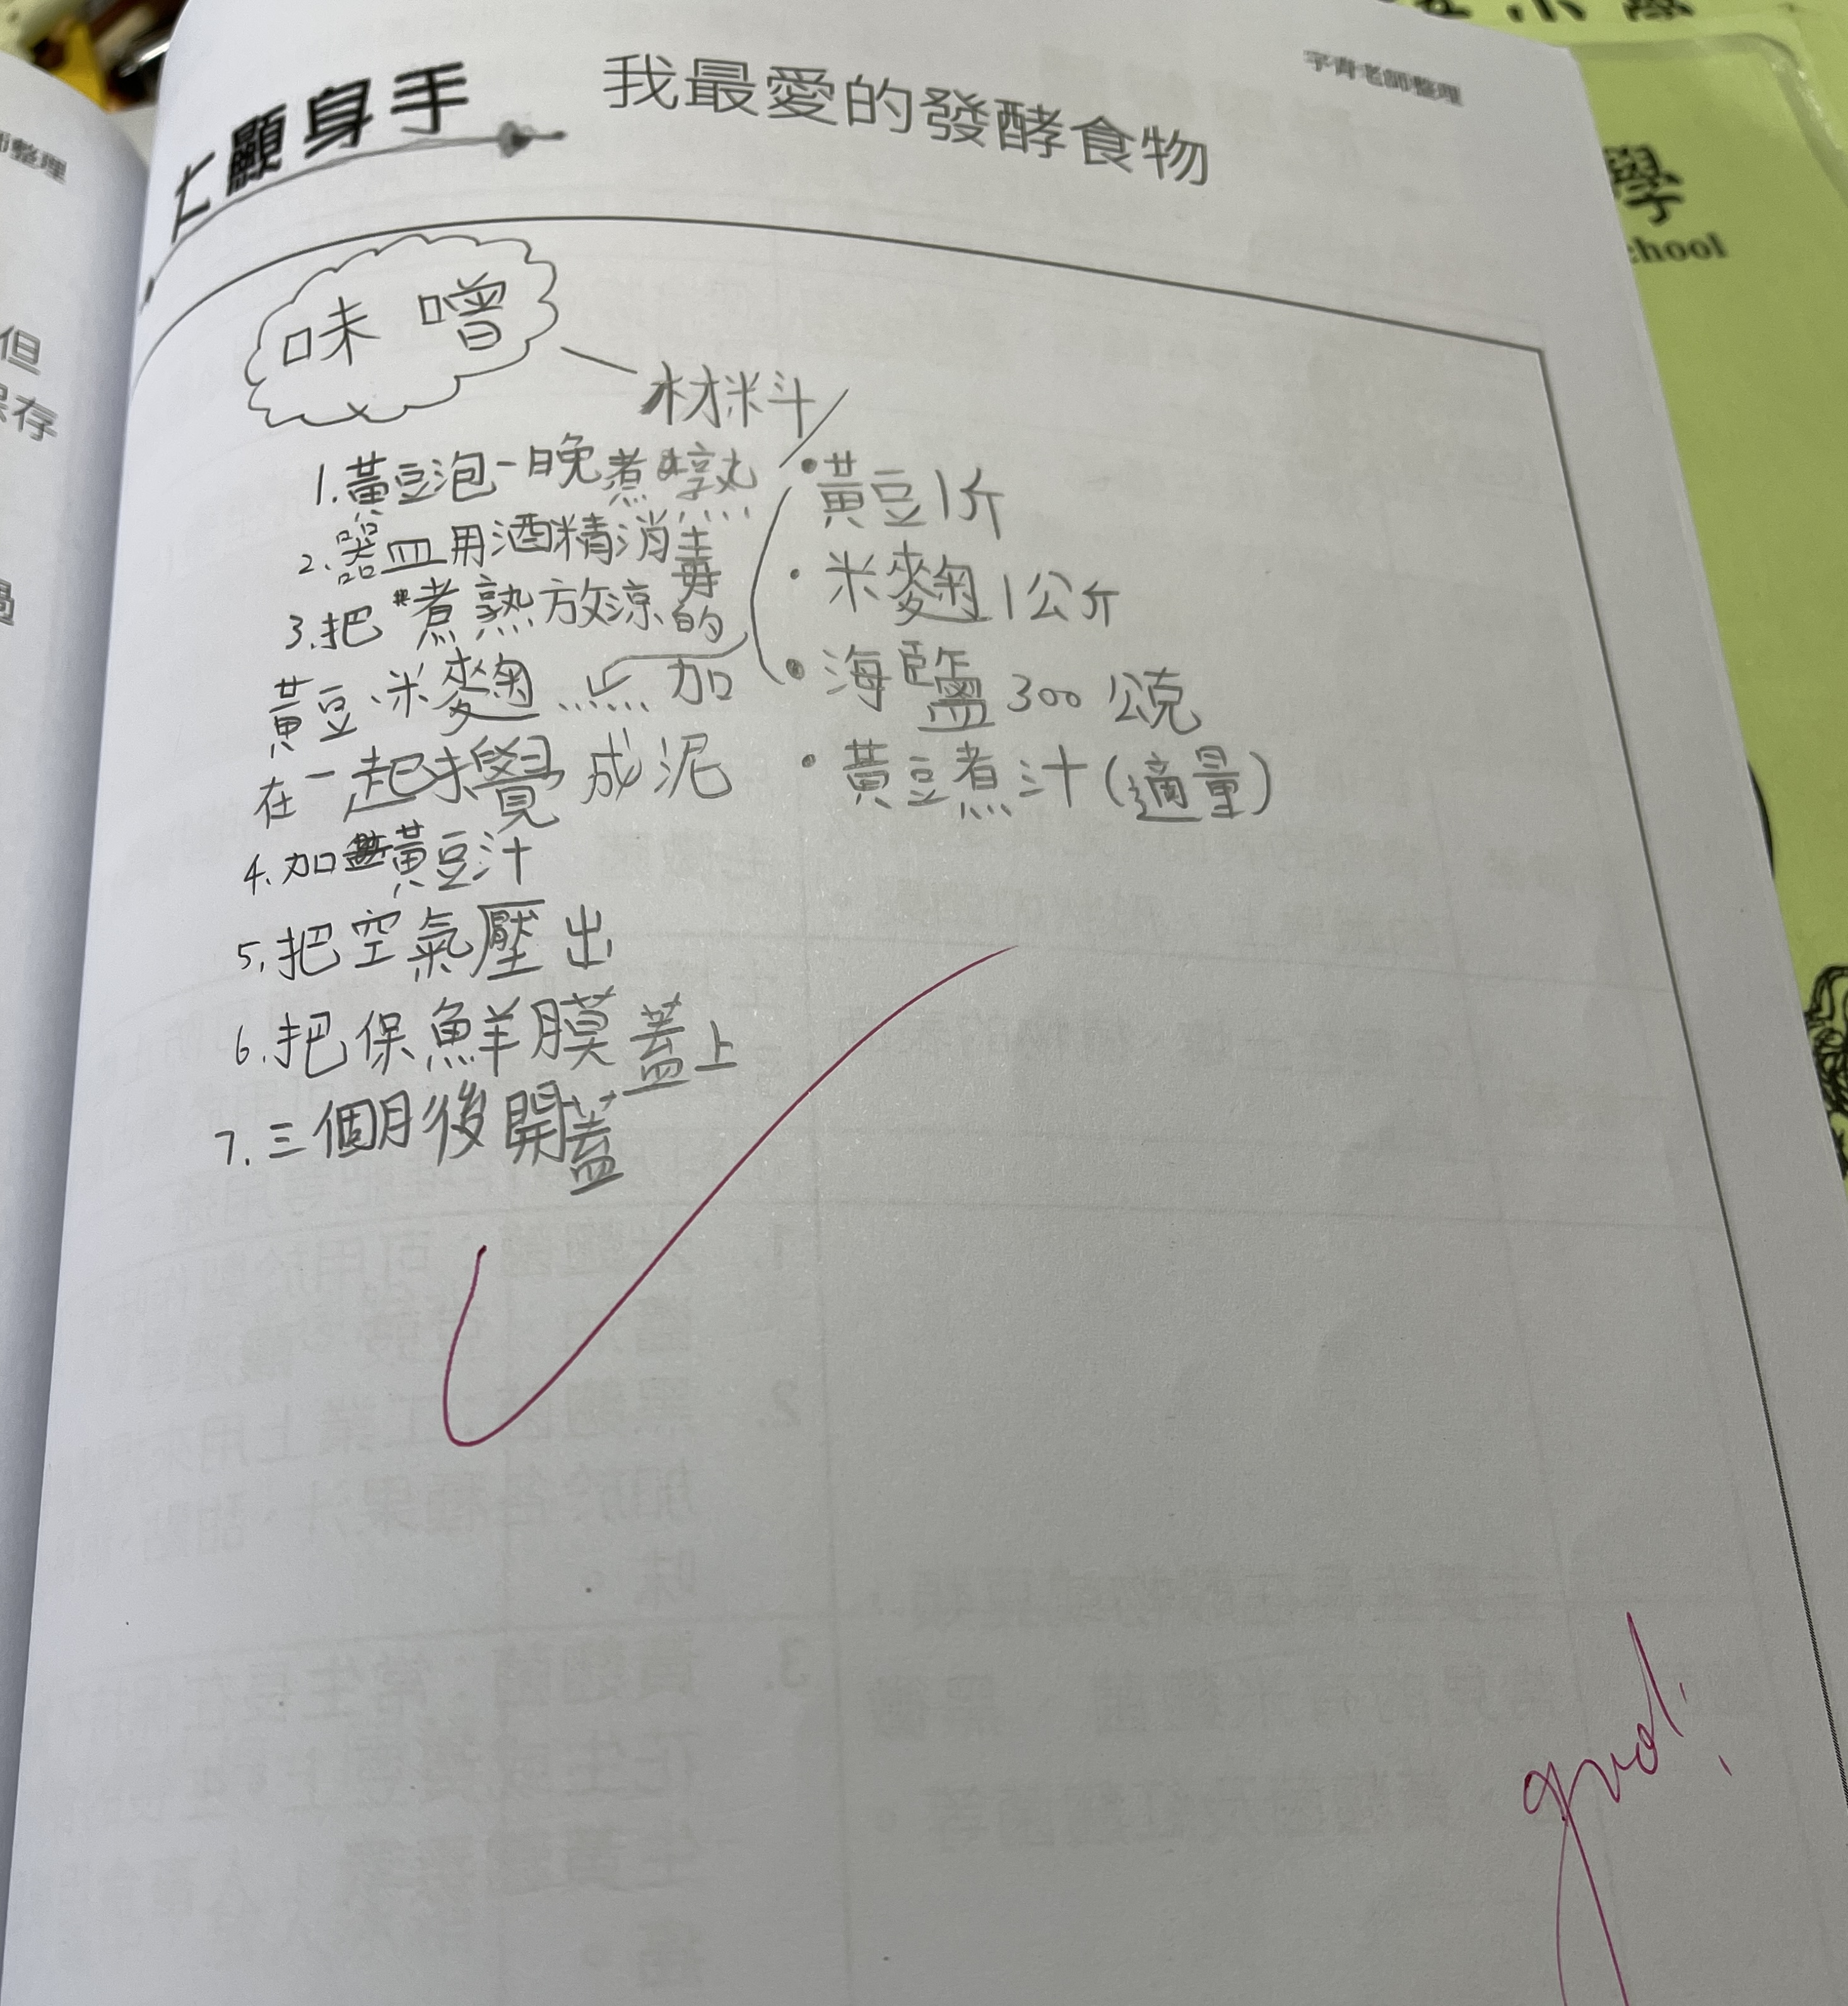 顯身手
我最愛的發酵食物
味噌
材料
1.黃豆泡一晚煮熟
2.器皿用酒精消毒
3.把煮熟放涼的
黃豆、米麴……加
在一起攪成泥
4.加黃豆汁
5.把空氣壓出
6.把保鮮膜蓋上
7.三個月後開蓋
•黃豆1斤
•米麴1公斤
•海鹽300公克
•黃豆煮汁(適量)
good!
師整理
但
保存
學
chool